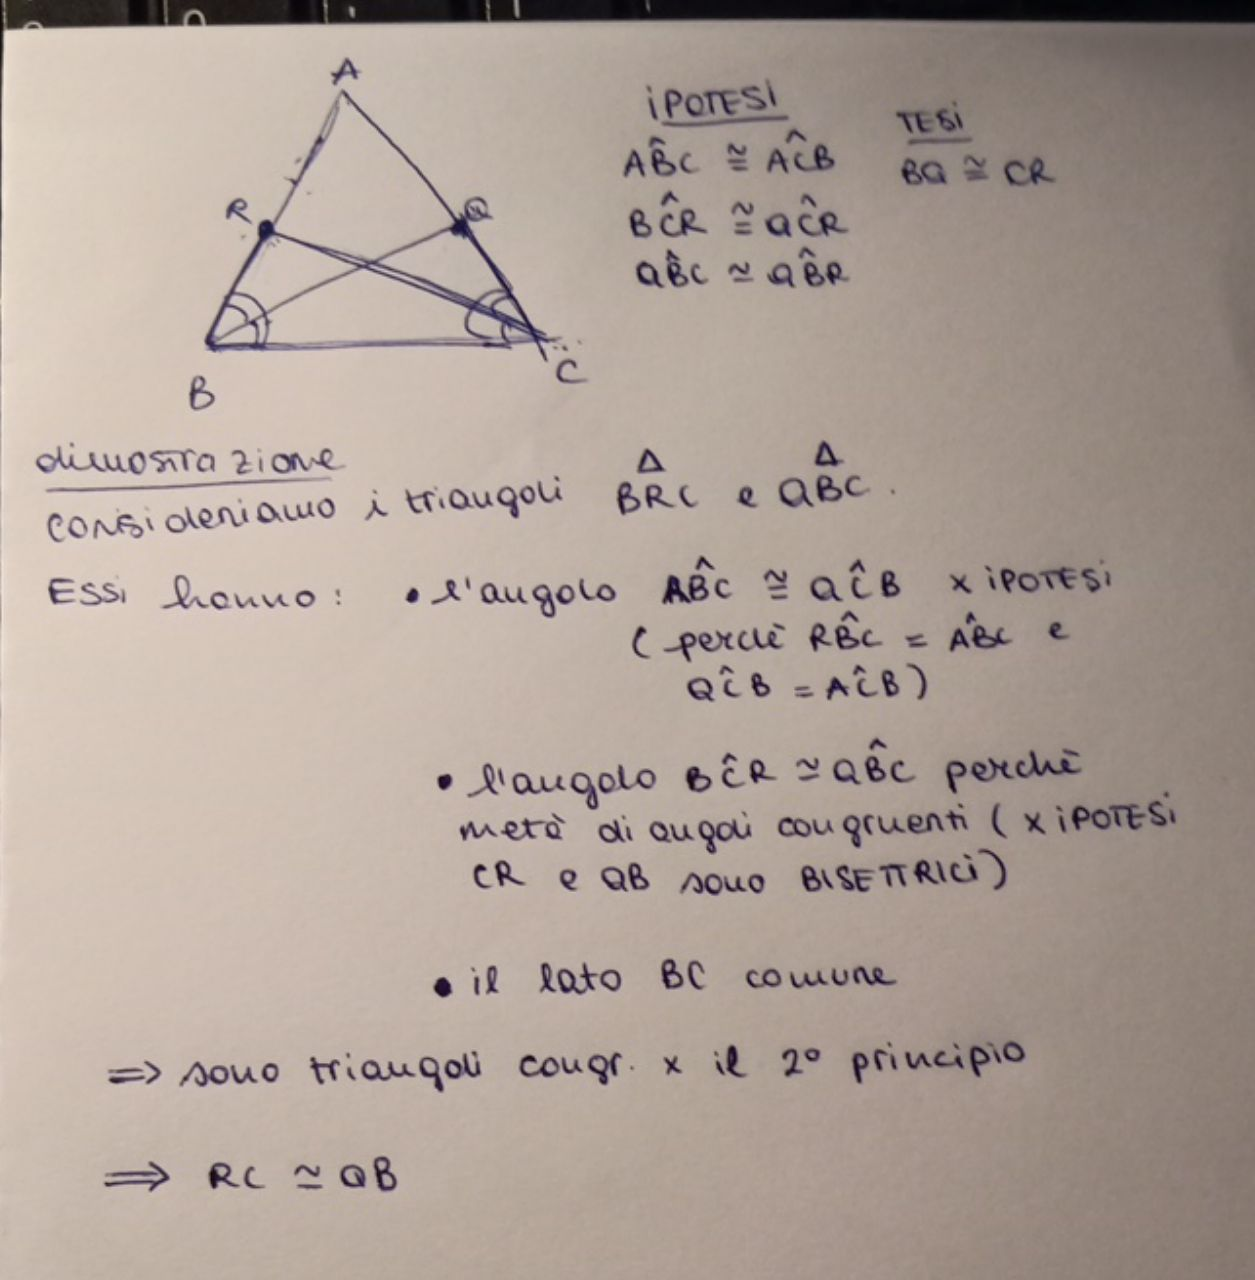 A
R
Q
B
C
iPOTESI
AB̂C ≅ AĈB
BĈR ≅ QĈR
QB̂C ≃ QB̂R
TESI
BQ ≅ CR
dimostrazione
consideriamo i triangoli BRC e QBC.
Essi hanno: • l'angolo AB̂C ≅ QĈB x iPOTESI
(perchè RB̂C = AB̂C e
QĈB = AĈB)
• l'angolo BĈR ≃ QB̂C perchè
metà di angoli congruenti (x iPOTESI
CR e QB sono BISETTRICI)
• il lato BC comune
⇒ sono triangoli congr. x il 2° principio
⇒ RC ≃ QB